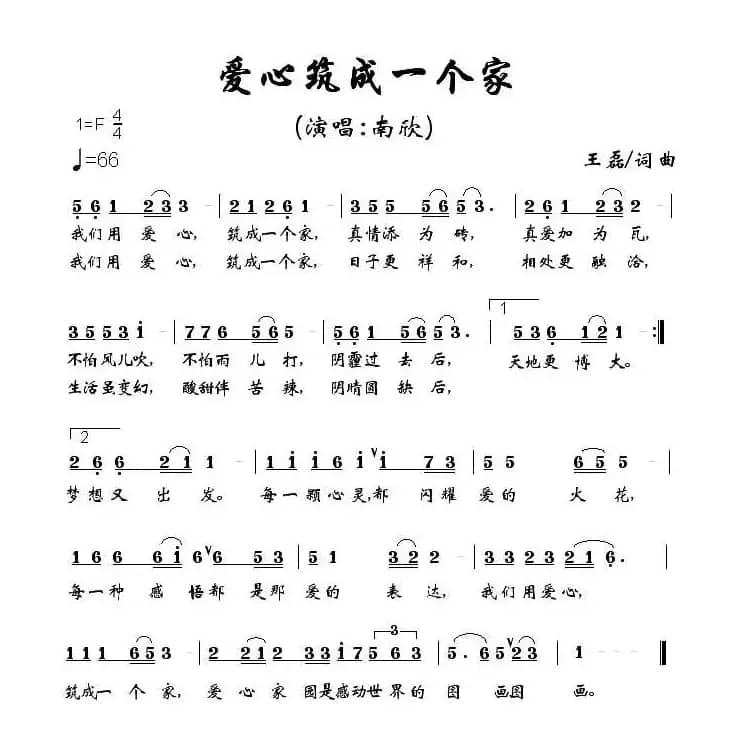 爱心筑成一个家
1=F 4/4 (演唱:南欣)
♩=66 王磊/词曲
5 6 1 2 3 3 - | 2 1 2 6 1 - | 3 5 5 5 6 5 3. | 2 6 1 2 3 2 - |
我们用 爱 心, 筑成一个家, 真情添 为 砖, 真爱加 为 瓦,
我们用 爱 心, 筑成一个家, 日子更 祥 和, 相处更 融 洽,
1
3 5 5 3 i - | 7 7 6 5 6 5 - | 5 6 1 5 6 5 3. | 5 3 6 1 2 1 - :|
不怕风儿吹, 不怕雨 儿 打, 阴霾过 去 后, 天地更 博 大。
生活虽变幻, 酸甜伴 苦 辣, 阴晴圆 缺 后,
2
2 6 6 2 1 1 - | 1 i i 6 i v i 7 3 | 5 5 6 5 5 - |
梦想又 出 发。 每一颗心灵,都 闪耀 爱的 火 花,
1 6 6 6 i 6 v 6 5 3 | 5 1 3 2 2 - | 3 3 2 3 2 1 6. |
每一种 感 悟都 是那 爱的 表 达, 我们用爱心,
1 1 1 6 5 3 - | 2 2 1 2 3 3 i 7 5 6 3 | 5. 6 5 v 2 3 | 1 - - - ‖
3
筑成一 个 家, 爱 心 家 园是感动世界的 图 画图 画。